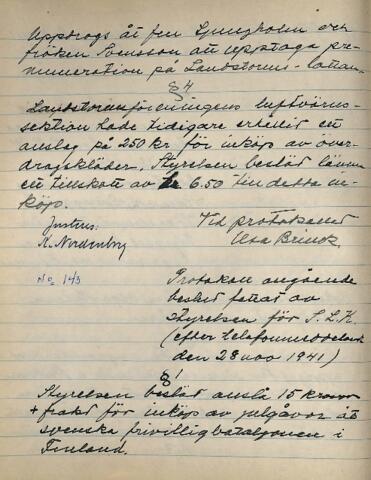 Uppdrogs åt fru Ljungholm och
fröken Svensson att upptaga pre-
numeration på Landstorms-lottan.
§ 4
Landstormsföreningens luftvärns-
sektion hade tidigare erhållit ett
anslag på 250 kr för inköp av över-
dragskläder. Styrelsen beslöt lämna
ett tillskott av kr 6.50 till detta in-
köp.
Vid protokollet
Justeras:
K. Nordenborg
Nº 143
Protokoll angående
beslut fattat av
styrelsen för S.L.K.
(efter telefonmeddelande
den 28 nov 1941)
§ 1
Styrelsen beslöt anslå 15 kronor
+ frakt för inköp av julgåvor åt
svenska frivilligbataljonen i
Finland.